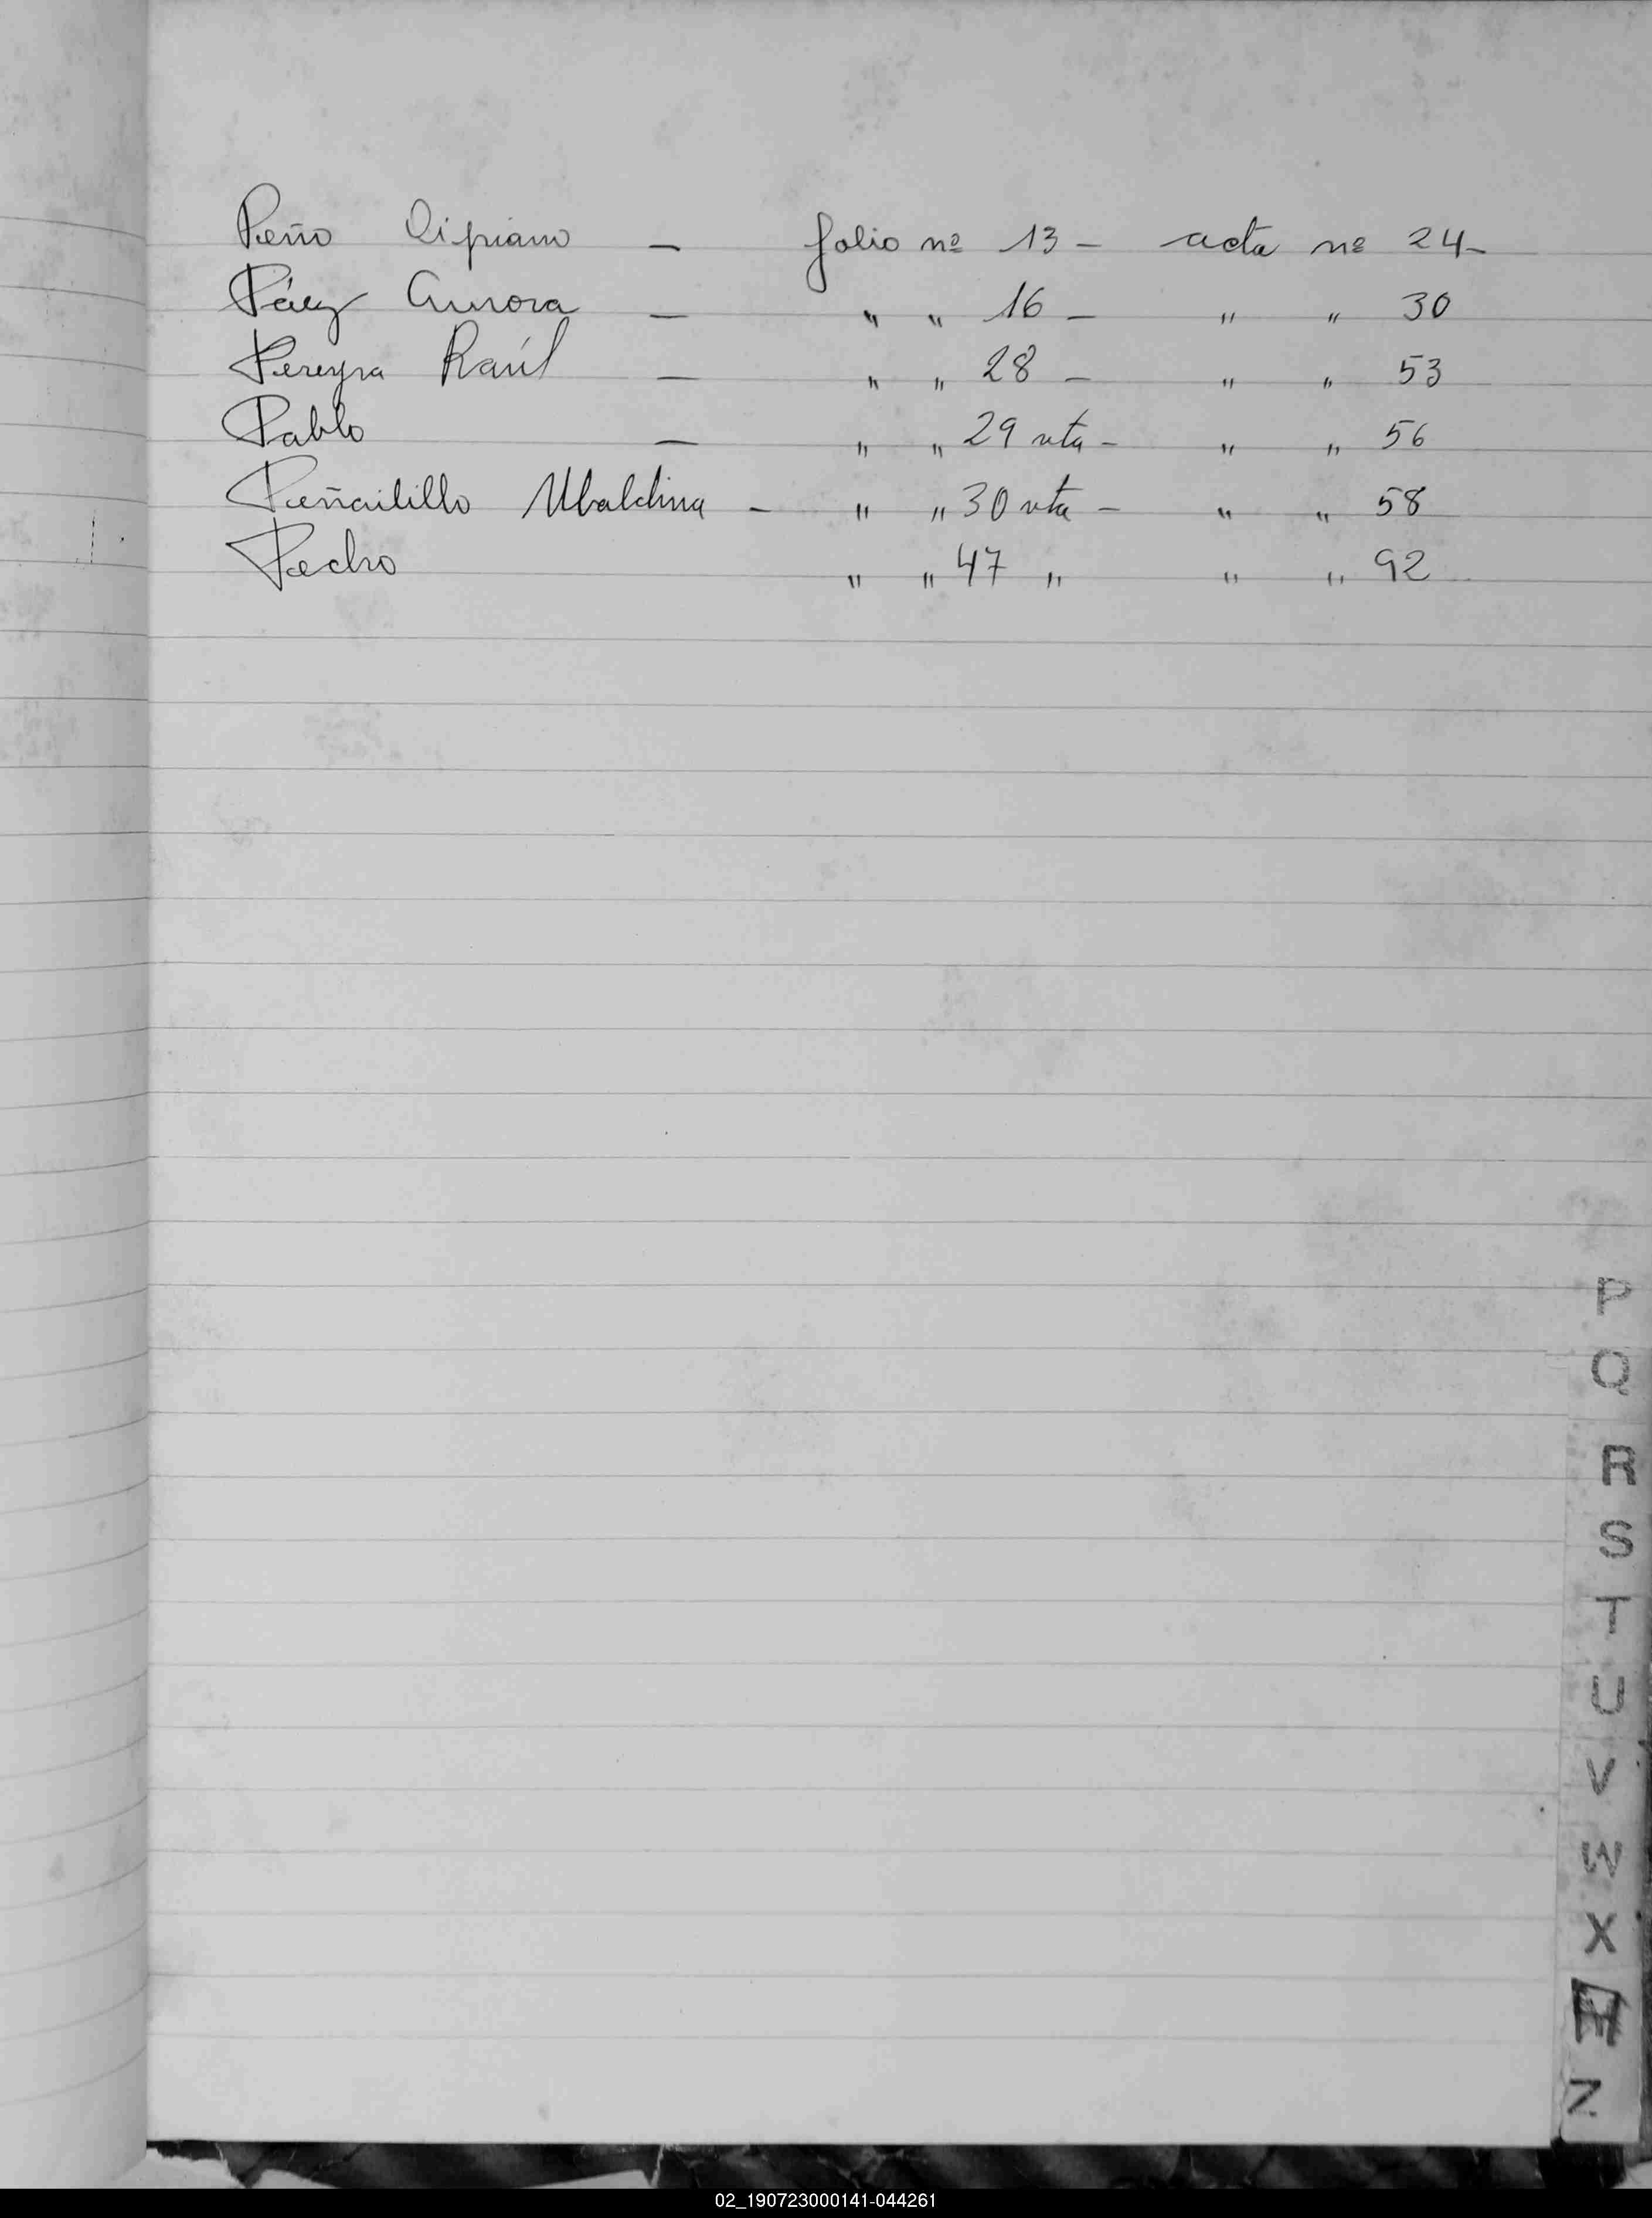 Peño Cipriano — folio nº 13 - acta nº 24 -
Páez Aurora — " " 16 - " " 30
Pereyra Raúl — " " 28 - " " 53
Pablo — " " 29 vta - " " 56
Peñailillo Ubaldina - " " 30 vta - " " 58
Pedro " " 47 " " " 92
P
Q
R
S
T
U
V
W
X
Z
02_190723000141-044261